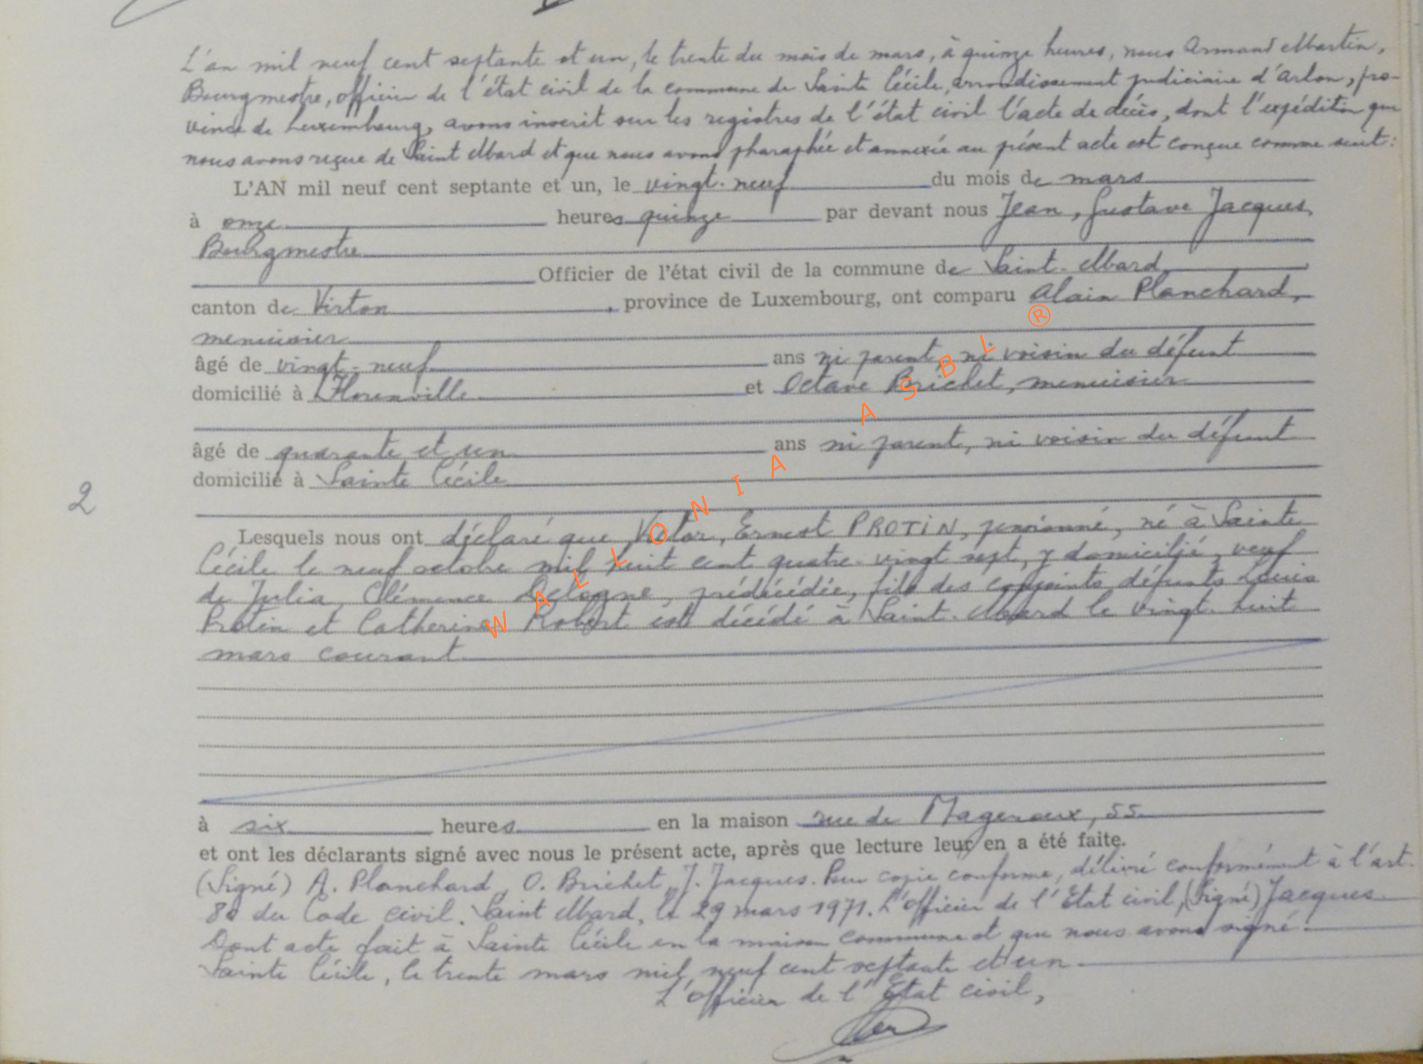 L'an mil neuf cent septante et un, le trente du mois de mars, à quinze heures, nous Armand Martin,
Bourgmestre, officier de l'état civil de la commune de Sainte Cécile, arrondissement judiciaire d'Arlon, pro-
vince de Luxembourg, avons inscrit sur les registres de l'état civil l'acte de décès, dont l'expédition que
nous avons reçue de Saint Mard et que nous avons pharaphée et annexée au présent acte est conçue comme suit :
L'AN mil neuf cent septante et un, le vingt-neuf du mois de mars
à onze heures quinze par devant nous Jean, Gustave Jacques,
Bourgmestre
Officier de l'état civil de la commune de Saint-Mard
canton de Virton, province de Luxembourg, ont comparu Alain Planchard,
menuisier
âgé de vingt-neuf ans ni parent, ni voisin du défunt
domicilié à Florenville et Octave Brichet, menuisier
âgé de quarante et un ans ni parent, ni voisin du défunt
domicilié à Sainte Cécile
2
Lesquels nous ont déclaré que Victor, Ernest PROTIN, pensionné, né à Sainte
Cécile le neuf octobre mil huit cent quatre-vingt sept, y domicilié, veuf
de Julia, Clémence Delogne, prédécédée, fils des conjoints défunts Louis
Protin et Catherine Robert est décédé à Saint-Mard le vingt-huit
mars courant
à six heures en la maison rue de Mageroux, 55
et ont les déclarants signé avec nous le présent acte, après que lecture leur en a été faite.
(Signé) A. Planchard, O. Brichet, J. Jacques. Pour copie conforme, délivré conformément à l'art.
80 du Code civil. Saint Mard, le 29 mars 1971. L'officier de l'Etat civil, (Signé) Jacques
Dont acte fait à Sainte Cécile en la maison commune et que nous avons signé.
Sainte Cécile, le trente mars mil neuf cent septante et un.
L'officier de l'Etat civil,
WALLONIA ASBL ®